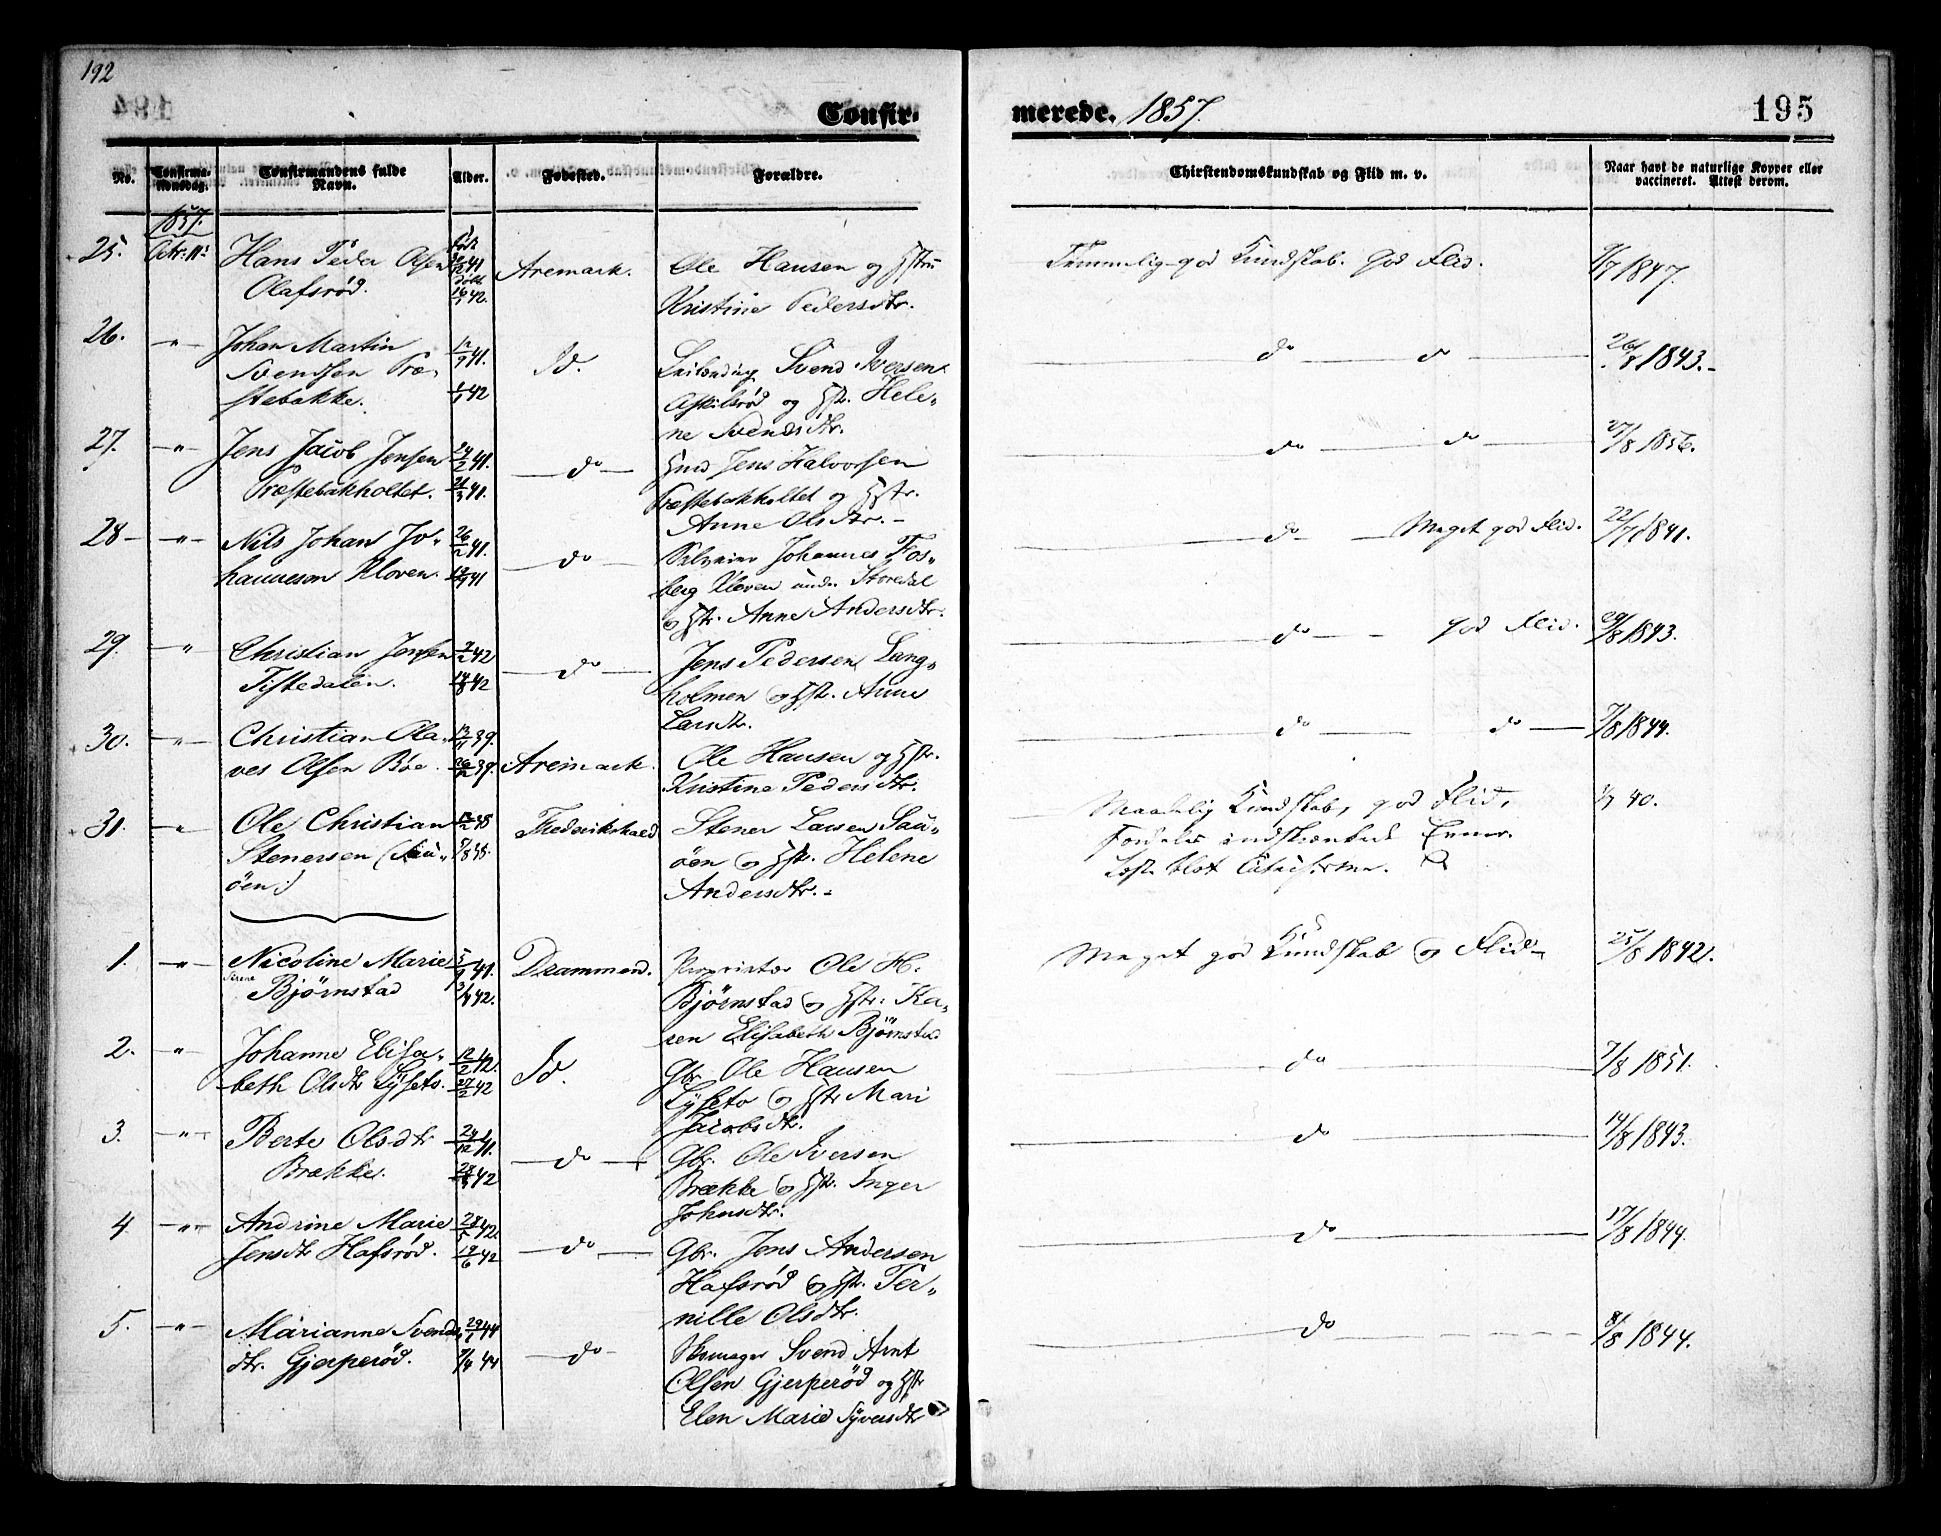 192
Confir-
merede. 1857.
195
No.
Confirma-
tionsdag.
Confirmandens fulde
Navn.
Alder.
Fødested.
Forældre.
Chirstendomskundskab og Flid m. v.
Naar havt de naturlige Kopper eller
vaccineret. Attest derom.
1857.
25. Octr. 11. Hans Peder Olsen
Olafsrød.
Aremark.
Ole Hansen og Hstru
Kristine Pedersdtr.
Temmelig god Kundskab. god Flid.
9/7 1847.
26. -"- Johan Martin
Svendsen Præ-
stebakke.
41.
1/1 42
Id.
Svend Iversen
Askilsrød og Hstr. Hele-
ne Svendsdtr.
do do
26/8 1843.-
27. -"- Jens Jacob Jensen
Præstebakholtet.
24/2 41.
21/3 41.
do
Huusm. Jens Halvorsen
Præstebakholtet og Hstr.
Anne Olsdtr.-
do do
27/8 1856.
28- -"- Nils Johan Jo-
hannesøn Kloven.
26/2 41.
41
do
Johannes Fos-
berg Kloven under Storedal
og Hstr. Anne Andersdtr.
do Meget god Flid.
22/7 1841.
29. -"- Christian Jensen
Tistedalen.
2/2 42
14/8 42
do
Jens Pedersen Lang-
holmen og Hstr. Anne
Larsdtr.
do god Flid.
29/8 1843.
30. -"- Christian Ola-
ves Olsen Bøe.
13/11 39.
26/12 39.
Aremark.
Ole Hansen og Hstr.
Kristine Pedersdtr.
do do
7/8 1844.
31. -"- Ole Christian
Stenersen (Sau-
øen:)
Frederikshald
Stener Larsen Sau-
øen og Hstr. Helene
Andersdtr.-
Maadelig Kundskab, god Flid,
indskrænkede Evner.
blot
40.
1. -"- Nicoline Marie
Bjørnstad
41.
3/4 42.
Drammen.
Proprietær Ole H.
Bjørnstad og Hstr: Ka-
ren Elisabeth Bjørnstad
Meget god Kundskab og Flid-
25/8 1842.
2. -"- Johanne Elisa-
beth Olsdtr Lyseto.
12/2 42.
27/2 42
Id.
Gbr. Ole Hansen
Lyseto og Hstr Mari
Jacobsdtr.
do
7/8 1851.
3. -"- Berte Olsdtr
Brække.
24/12 41.
42
do
Gbr. Ole Iversen
Brække og Hstr. Inger
Johnsdtr.
do
14/8 1843.
4 -"- Andrine Marie
Jensdtr Hafsrød.
28/5 42.
19/6 42
do
Gbr. Jens Andersen
Hafsrød og Hstr. Per-
nille Olsdtr.
do
17/8 1844.
5. -"- Marianne Svends-
dtr. Gjerperød.
29/1 44
7/4 44
do
Skomager Svend Arnt
Olsen Gjerperød og Hstr
Elen Marie Syversdtr
do
8/8 1844.